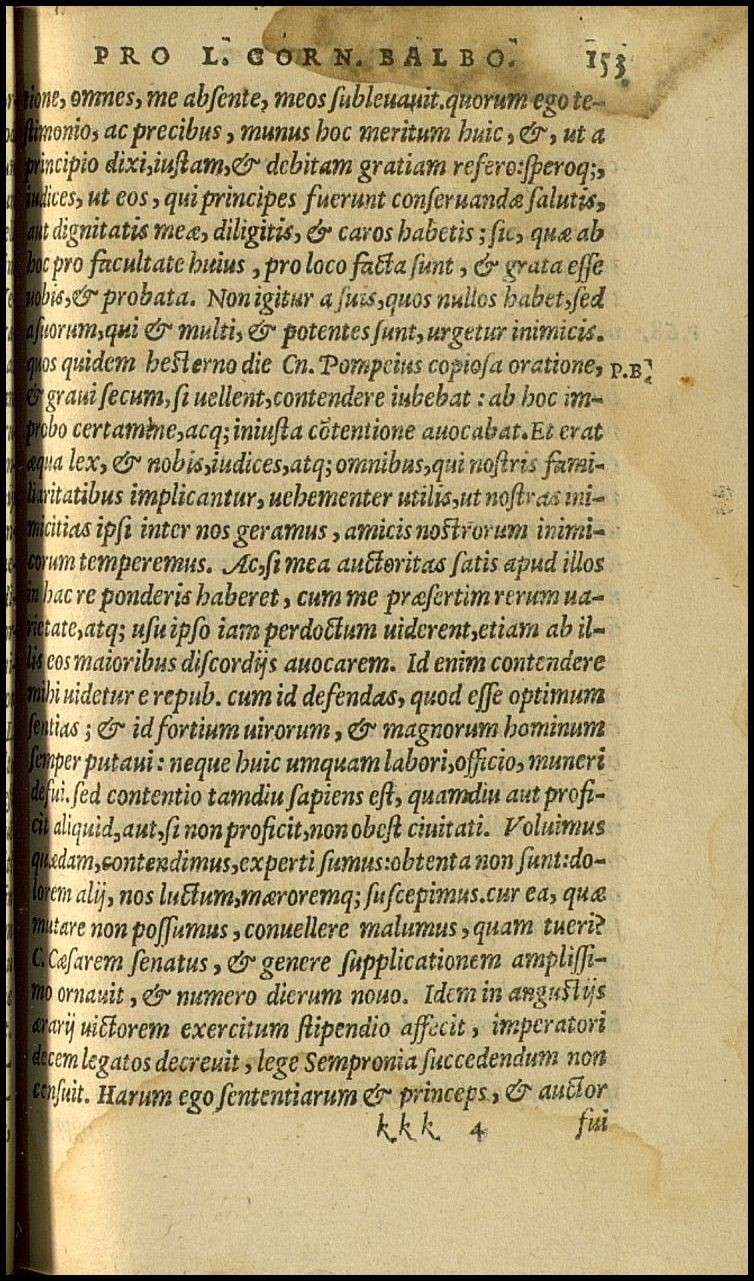 PRO L. CORN. BALBO. 153
tione, omnes, me absente, meos subleuauit. quorum ego te-
stimonio, ac precibus, munus hoc meritum huic, &, ut a
principio dixi, iustam, & debitam gratiam refero: speroq;,
iudices, ut eos, qui principes fuerunt conseruandæ salutis,
aut dignitatis meæ, diligitis, & caros habetis; sic, quæ ab
hoc pro facultate huius, pro loco facta sunt, & grata esse
uobis, & probata. Non igitur a suis, quos nullos habet, sed
a suorum, qui & multi, & potentes sunt, urgetur inimicis.
quos quidem hesterno die Cn. Pompeius copiosa oratione, P.B.
& graui secum, si uellent, contendere iubebat: ab hoc im-
probo certamine, acq; iniusta cõtentione auocabat. Et erat
æqua lex, & nobis, iudices, atq; omnibus, qui nostris fami-
liaritatibus implicantur, uehementer utilis, ut nostras ini-
micitias ipsi inter nos geramus, amicis nostrorum inimi-
corum temperemus. Ac, si mea auctoritas satis apud illos
in hac re ponderis haberet, cum me præsertim rerum ua-
rietate, atq; usu ipso iam perdoctum uiderent, etiam ab il-
lis eos maioribus discordijs auocarem. Id enim contendere
mihi uidetur e repub. cum id defendas, quod esse optimum
sentias; & id fortium uirorum, & magnorum hominum
semper putaui: neque huic umquam labori, officio, muneri
defui. sed contentio tamdiu sapiens est, quamdiu aut profi-
cit aliquid, aut, si non proficit, non obest ciuitati. Voluimus
quædam, contendimus, experti sumus: obtenta non sunt: do-
lorem alij, nos luctum, mæroremq; suscepimus. cur ea, quæ
mutare non possumus, conuellere malumus, quam tueri?
C. Cæsarem senatus, & genere supplicationem amplissi-
mo ornauit, & numero dierum nouo. Idem in angustijs
ærarij uictorem exercitum stipendio affecit, imperatori
decem legatos decreuit, lege Sempronia succedendum non
censuit. Harum ego sententiarum & princeps, & auctor
kkk 4 fui